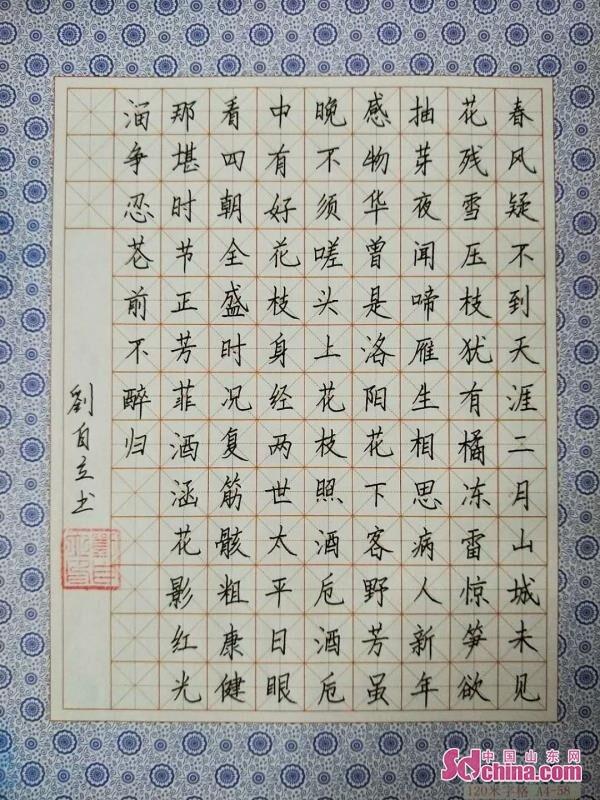 春风疑不到天涯二月山城未见
花残雪压枝犹有橘冻雷惊笋欲
抽芽夜闻啼雁生相思病人新年
感物华曾是洛阳花下客野芳虽
晚不须嗟头上花枝照酒卮酒卮
中有好花枝身经两世太平日眼
看四朝全盛时况复筋骸粗康健
那堪时节正芳菲酒涵花影红光
溜争忍花前不醉归
劉自立书
中国山东网
Sdchina.com
120米字格 A4-58